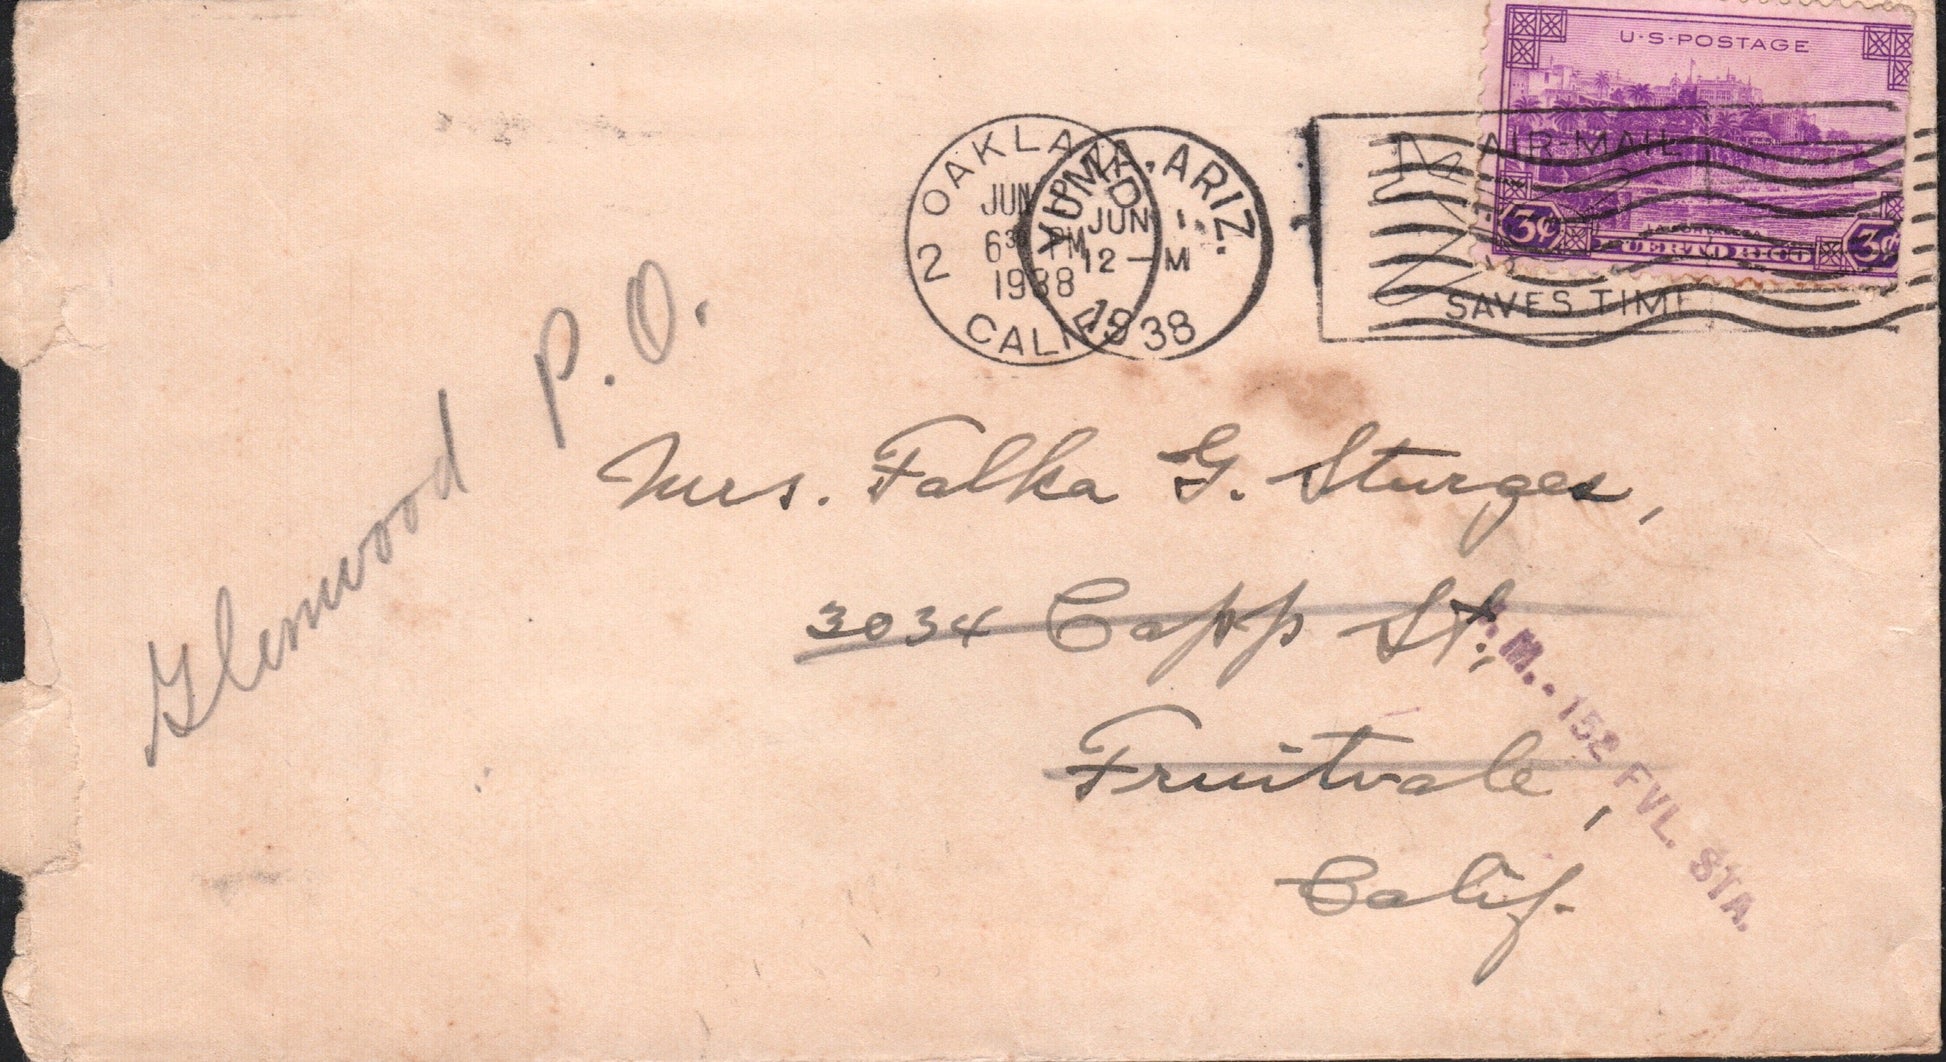 U·S·POSTAGE
3¢ PUERTO RICO 3¢
OAKLAND
JUN
6 30 PM
1938
CALIF.
2
YUMA, ARIZ.
JUN 1
12 — M
1938
AIR MAIL
SAVES TIME
Glenwood P.O.
Mrs. Falka G. Sturges,
3034 Capp St.,
Fruitvale,
Calif.
M. - 152 FVL. STA.